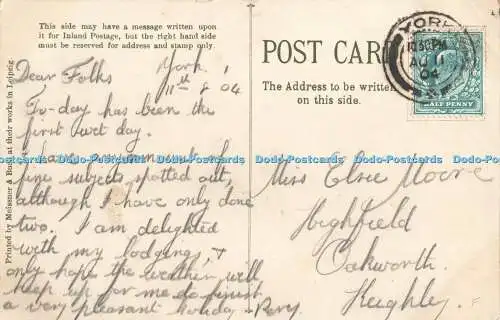 This side may have a message written upon
it for Inland Postage, but the right hand side
must be reserved for address and stamp only.
Dear Folks York
11th 8 04
To-day has been the
first wet day.
I have
nine subjects spotted out,
although I have only done
two. I am delighted
with my lodgings, &
only hope the weather will
keep up for me to finish
a very pleasant holiday - Percy
Printed by Meissner & Buch at their works in Leipzig.
POST CARD
The Address to be written
on this side.
YORK
10 30 PM
AU 11
04
HALF PENNY
Miss Elsie Moore
Highfield
Oakworth
Keighley
Dodo-Postcards Dodo-Postcards Dodo-Postcards Dodo-Postcards Dodo-Postcards